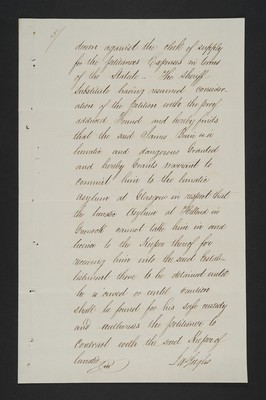 3/
decern against the clerk of supply
for the petitioners Expenses in terms
of the Statute — The Sheriff
Substitute having resumed consider-
ation of the petition with the proof
adduced Found and hereby finds
that the said James is a
lunatic and dangerous Granted
and hereby Grants warrant to
commit him to the lunatic
Asylum at Glasgow in respect that
the lunatic Asylum at in
cannot take him in and
licence to the Keeper thereof for
receiving him into the said Estab-
lishment there to be detained until
he is cured or until caution
shall be found for his safe custody
and authorises the petitioner to
contract with the said Keeper of
lunatic